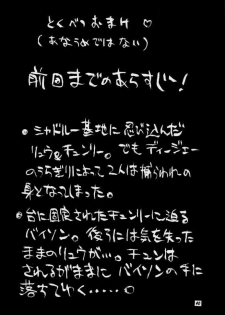 とくべつおまけ♡
(あなうめではない)
前回までのあらすじ〜!
●シャドルー基地に忍び込んだ
リュウ&チュンリー。でもディージェー
のうらぎりによって2人は捕らわれの
身となってしまった。
●台に固定されたチュンリーに迫る
バイソン。後ろには気を失った
ままのリュウが…。チュンは
されるがままにバイソンの手に
落ちてゆく……○